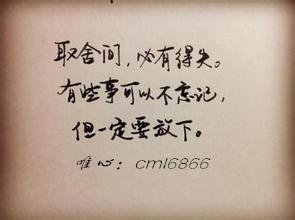 取舍间，必有得失。
有些事可以不忘记，
但一定要放下。
唯心：cml6866